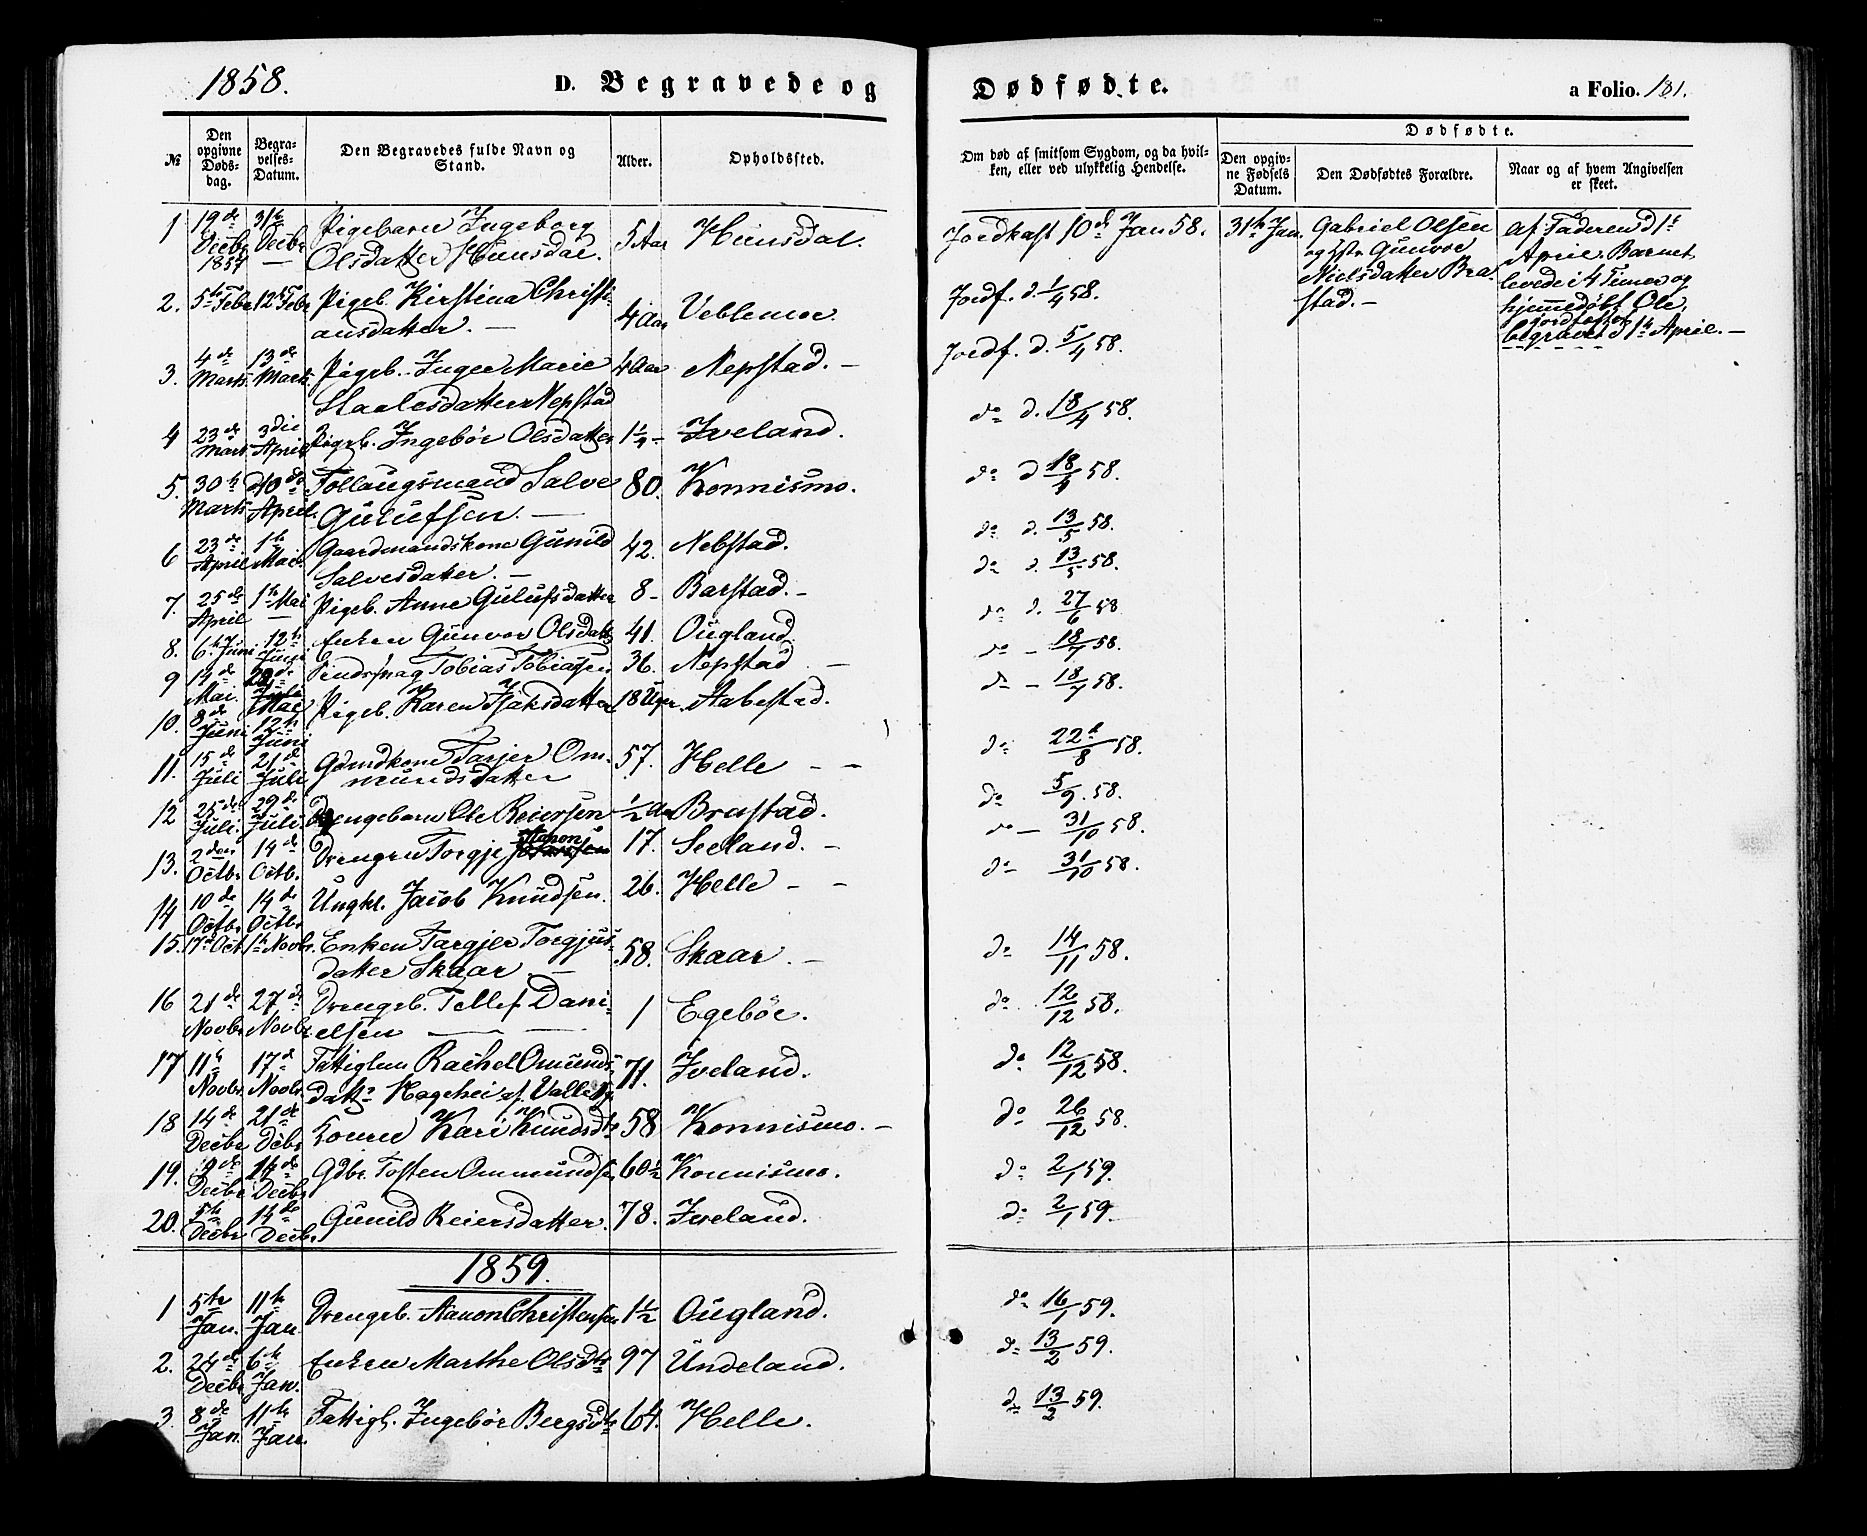 1858.
D. Begravede og Dødfødte.
a Folio. 131.
№
Den opgivne Døds-dag.
Begra-velses-Datum.
Den Begravedes fulde Navn og Stand.
Alder.
Opholdssted.
Om død af smitsom Sygdom, og da hvil-ken, eller ved ulykkelig Hendelse.
Dødfødte.
Den opgiv-ne Fødsels Datum.
Den Dødfødtes Forældre.
Naar og af hvem Angivelsen er skeet.
1 19de Decbr 1857 31te Decbr Pigebarn Ingeborg Olsdatter Hunsdal. 5 Aar Hunsdal. Jordkast 10de Jan 58.
31te Jan. Gabriel Olsen og Hstr Gunvor Nielsdatter Brastad.—
af Faderen d 1te April. Barnet levede i 4 Timer og hjemmedøbt Ole, jordfæstet begravet d 1te April.—
2. 5te Febr 12te Febr Pigeb. Kirstina Christiansdatter.— 4 Aar Veblemoe Jordf. d. 1/4 58.
3. 4de Marts 13de Marts Pigeb. Inger Marie Staalesdatter Nepstad 4 Aar Nepstad.— Jordf. d. 5/4 58.
4 23de Marts 3die April Pigeb. Ingebör Olsdatter 1 1/4 – Iveland. do d. 18/4 58.
5. 30te Marts d 10de April Follaugsmand Salve Gulufsen.— 80. Konnismo. do d 18/4 58.
6 23de April 1te Mai Gaardmandskone Gunild Salvesdatter.— 42. Nebstad. do d. 13/5 58.
7. 25de April 1te Mai Pigeb. Anne Gulufsdatter 8 – Barstad.– do d. 13/5 58.
8. 6te Juni 12te Juni Enken Gunvor Olsdatt 41. Ougland. do d. 27/6 58
9 14de Mai. 22de Mai Tobias Tobiassen 36. Nepstad — do – 18/7 58.
10. 8de Juni 12te Juni Pigeb. Karen Isaksdatter 18 Uger. Aabestad. do – 18/7 58.
11. 15de Juli 21de Juli Gdmdkone Tarjer Ommundsdatter 57. Helle – – do 22de/8 58.
12 25de Juli. 29de Juli. Drengebarn Ole Reiersen 1/2 Aar Brastad. do 5/9. 58.
13. 2den Octbr 14de Octb. Drengen Torgje Aanonsen 17. Seeland.– do – 31/10 58.
14 10de Octbr 14de Octbr Ungkl. Jacob Knudsen. 26. Helle – – do – 31/10 58.
15. 17de Oct. 1te Novbr. Enken Targjer Torgjusdatter Skaar.— 58. Skaar.– do 14/11 58.
16 21de Novbr 27de Novbr. Drengeb. Tellef Danielsen — 1 Egeböe. do 12/12 58.
17 11te Novbr. 17de Novbr. Fattiglem Rachel Omundsdattr Hagehei af Valle Sg. 71. Iveland. do 12/12 58.
18 14de Decbr 21de Debr Konen Kari Knudsdtr 58 Konnismo.– do 26/12 58.
19. 9de Decbr 14de Decbr Gdbr. Tosten Ommundsen 60 1/2 Konnismo. do 2/1 59.
20. 5te Decbr 14de Decbr. Gunild Reiersdatter. 78. Iveland. do 2/1 59.
1859.
1 5te Jan. 11te Jan. Drengeb. Aanon Christensen 1 1/2 Ougland. do 16/1 59.
2. 24de Decbr 6te Jan. Enken Marthe Olsdtr 97 Undeland. do 13/2 59.
3. 8de Jan. 11te Jan. Fattigl. Ingebör Bergsdtr 64. Helle. do 13/2 59.